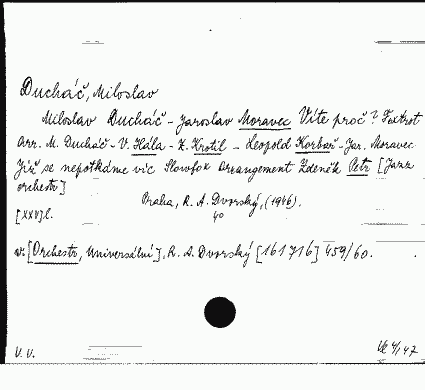 Ducháč, Miloslav
Miloslav Ducháč - Jaroslav Moravec Víte proč? Foxtrot
Arr. M. Ducháč - V. Hála - K. Krotil - Leopold Korbař - Jar. Moravec
Již se nepotkáme víc Slowfox Arrangement Zdeněk Petr [Jazz
orchestr]
Praha, R. A. Dvorský, (1946).
40
[XXV]l.
[Orchestr, Universální], R. A. Dvorský [161716] 459/60.
V. V.